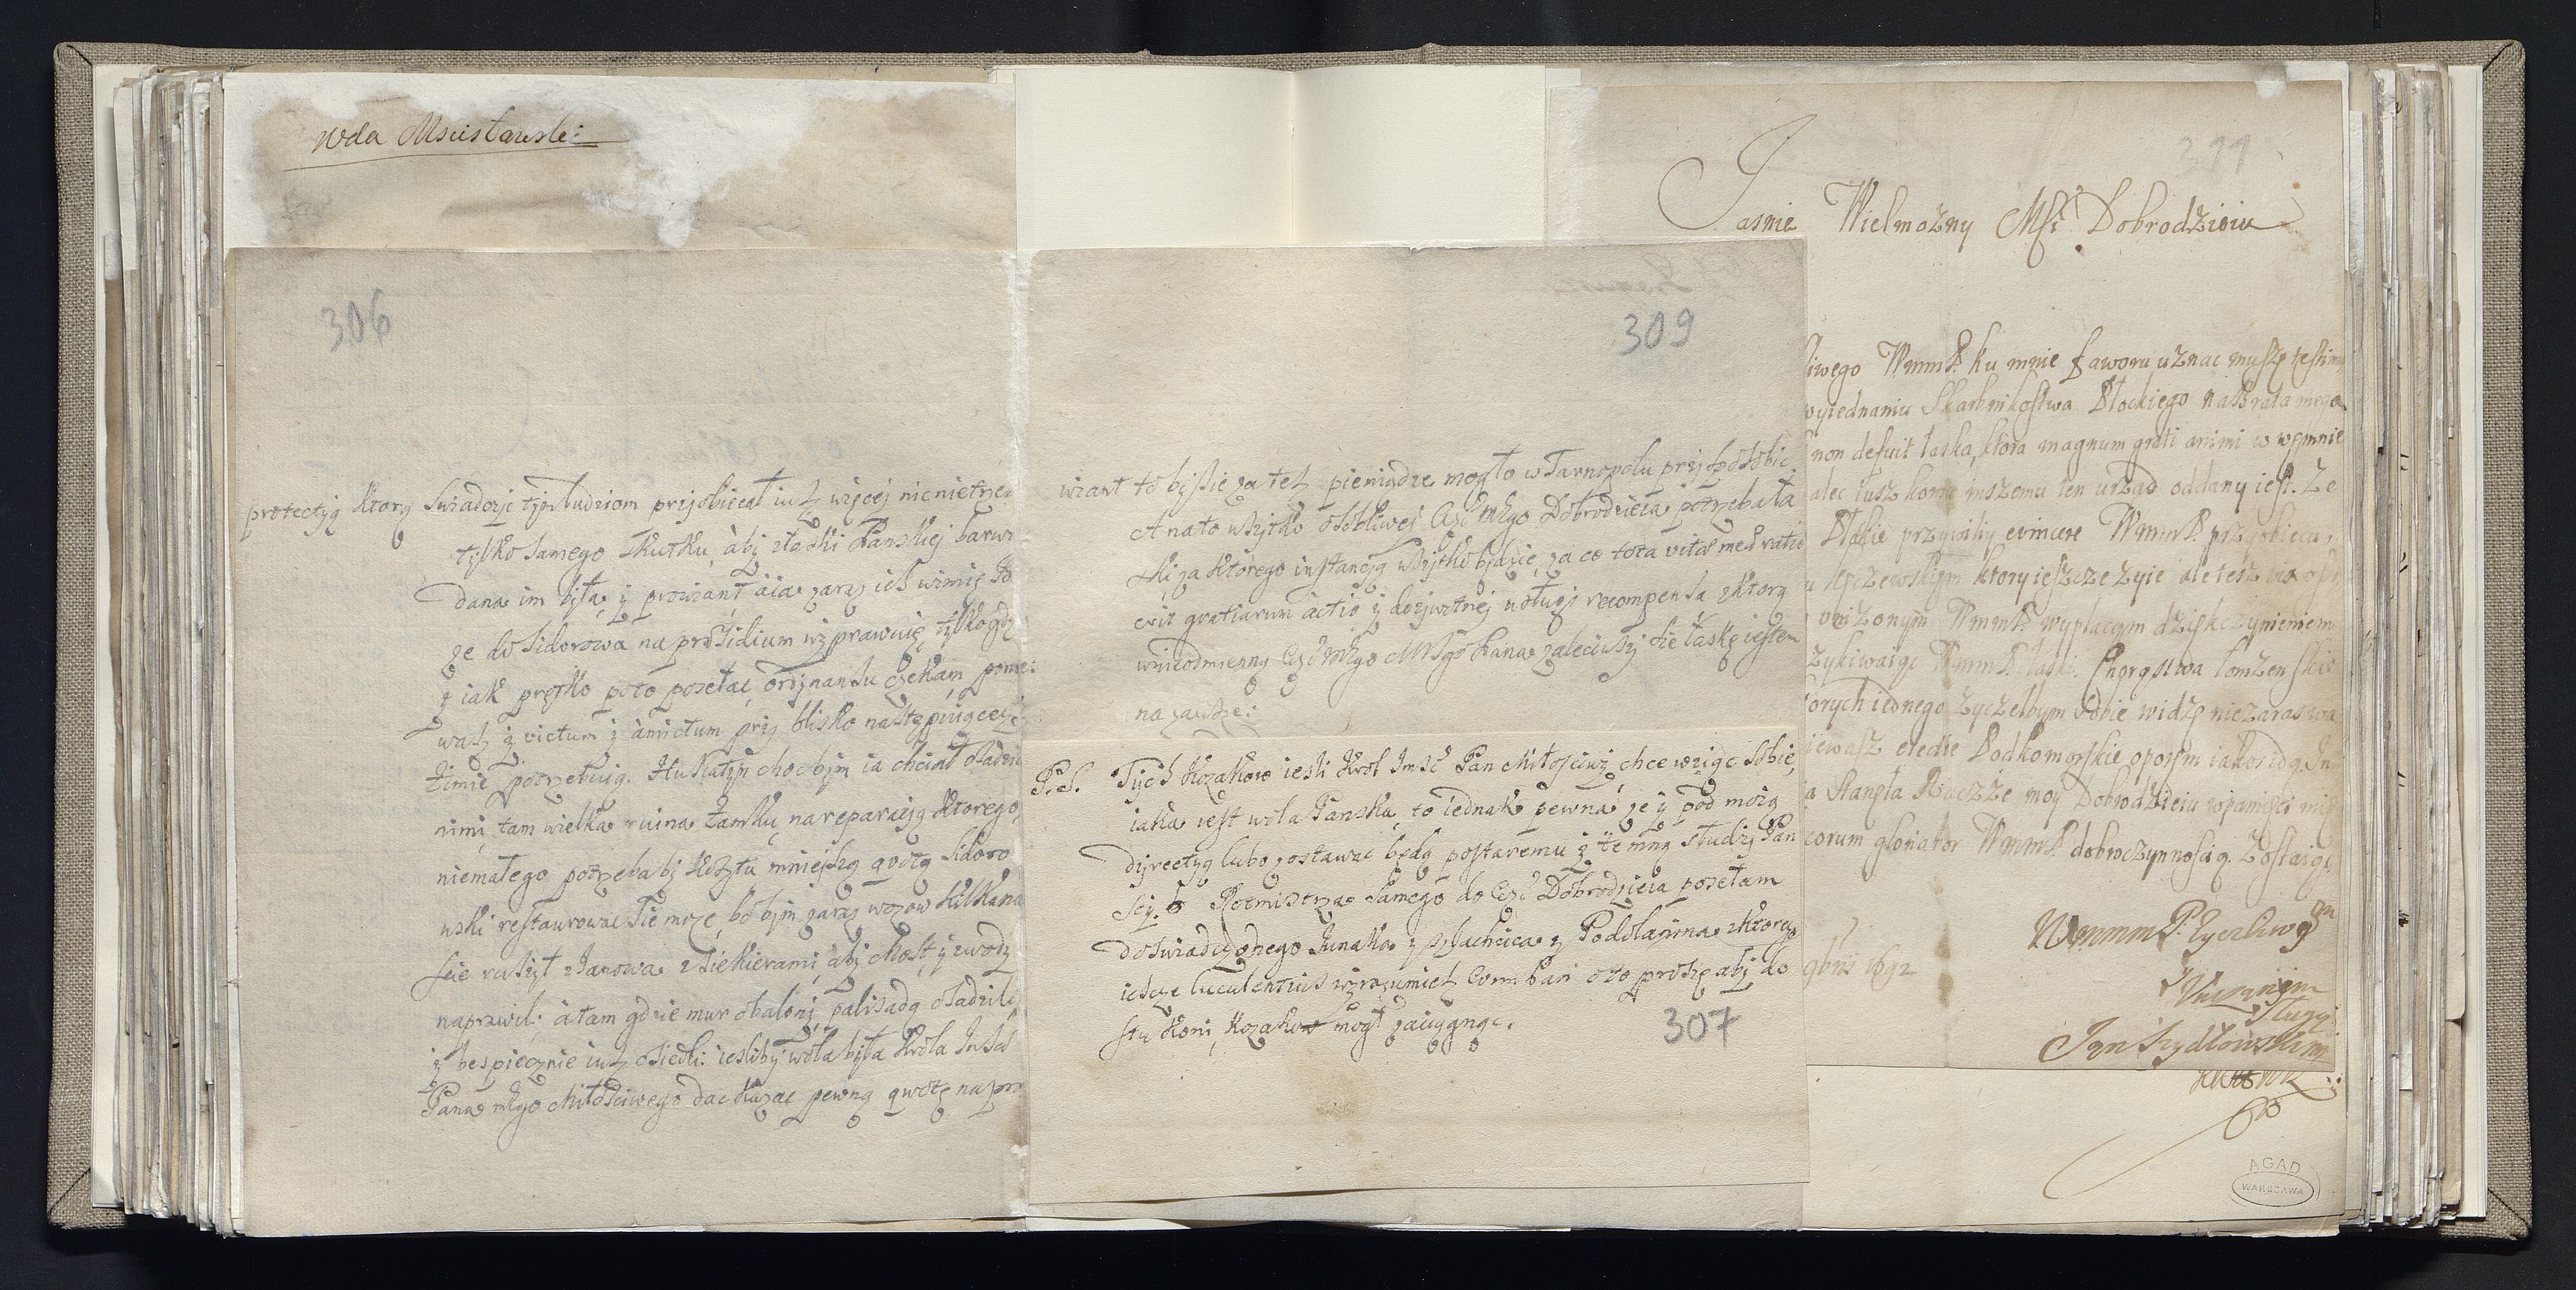 Wda Mscisławski:
306
protectyą ktory swiadczę tym ludziom przyobiecał iuż więcej nic nietrze
tylko samego skutku, aby złaski Panskiej barwa
dana im była y prowiant aia zaraz ich wimię Bo
że do Sidorowa na prosidium wyprawuię tylko gdy
y iak prętko poto posełać ordynansu czekam ponie
wasz y victum y amictum przy blisko następuiącey
zimie potrzebuią. Hukatyn chocbym ia chciał osadzić
nimi tam wielka ruina Zamku na reparacyą ktorego
niemałego potrzebaby kosztu mnieyszą qvotą Sidoro
wski restaurować sie może, bo bym zaraz wozow kilkana
scie ruszył zJanowa zsiekierami aby Most y zwody
naprawili a tam gdzie mur obalony palisadą osadzili
y bespiecznie iuż osiedli: iesliby wola była Krola JnMsci
Pana mego Miłosciwego dac kazac pewną qwotę na pro
309
wiant to by sie za też pieniądze mogło w Tarnopolu przysposobic
A nato wszytko osobliwej mego Dobrodzieia potrzeba ła
ski za ktorego instancyą wszytko będzie, za co tota vita mea
erit gratiarum actio y dozywotniej usługi recompensa zktorą
wnieodmienny mego Pana zaleciwszy sie łaskę iestem
na zawsze:
P.S. Tych Kozakow iesli Krol Jmsc Pan Miłosciwy chce wziąc sobie,
iaka iest wola Panska, to iednak pewna że y pod moią
dyrectyą lubo zostawac będą postaremu y ze mną słudzy Pan
scy. Rotmistrza samego do Dobrodzieia posełam
doswiadczonego Junaka y szlachcica y Podolanina zktorego
iescze luculentius wyrozumiesz Pan oto proszę aby do
stu koni Kozakow mogł zaciągnąc.
307
311
Jasnie Wielmożny Msci Dobrodzieiu
liwego WmmP. ku mnie faworu uznac muszę
wyiednaniu Skarbnikostwa Płockiego nabrata mego
non defuit łaska, ktora magnum grati animi w wemnie
alec iusz komu inszemu ten urząd oddany iest. Że
Płockie przywiliy evincere WmmP. przyobiecał
ktory ieszcze żyie ale tesz
unizonym WmmP. wypłacam dziękczynieniem
WmmP. łaski. Chorąstwa Łomżenskie
orych iednego życzełbym sobie widzę niezaraz wa
iewasz Podkomorskie
a Stanęła Raczże moy Dobrodzieiu wpamięci
corum WmmP. dobroczynnoscią. Zostaiąc
WmmmP. życzliwym
y Uniżonym
Sługą
9bris 1692
Jan Szydłowski
AGAD
WARSZAWA